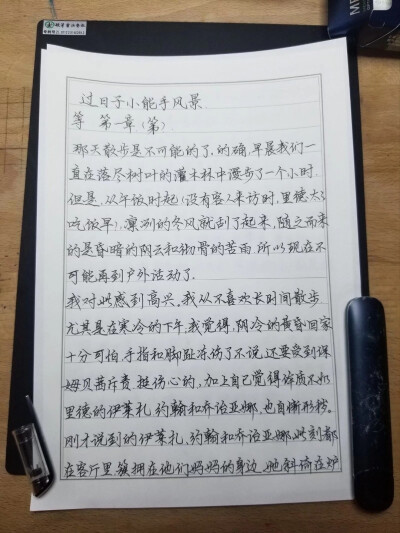 过日子小能手风景
等 第一章(第)
那天散步是不可能的了,的确,早晨我们一
直在落尽树叶的灌木林中漫步了一个小时,
但是,从午饭时起(没有客人来访时,里德太太
吃饭早),凛冽的冬风就刮了起来,随之而来
的是昏暗的阴云和彻骨的苦雨,所以现在不
可能再到户外活动了.
我对此感到高兴,我从不喜欢长时间散步
尤其是在寒冷的下午,我觉得,阴冷的黄昏回家
十分可怕,手指和脚趾冻伤了不说,还要受到保
姆贝茜斥责,挺伤心的,加上自己觉得体质不如
里德的伊莱扎,约翰和乔治亚娜,也自惭形秽.
刚才说到的伊莱扎、约翰和乔治亚娜,此刻都
在客厅里,簇拥在他们妈妈的身边,她斜倚在炉